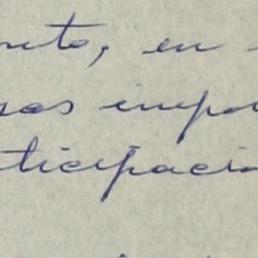 nto, en
sas impo
ticipació